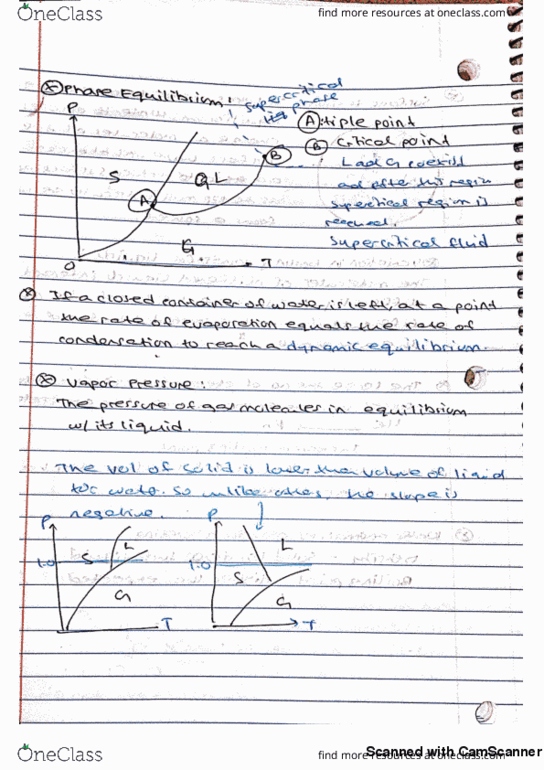 OneClass
find more resources at oneclass.com
Phase Equilibrium!
Supercritical
liq phase
P
A :tiple point
B Critical point
L and G coexist
and after this region
supercritical region is
reached.
Supercritical fluid
S
L
A
B
G
O
T
If a closed container of water is left, at a point
the rate of evaporation equals the rate of
condensation to reach a dynamic equilibrium.
Vapor Pressure:
The pressure of gas molecules in equilibrium
w/ its liquid.
The vol of solid is lower than volume of liquid
for water. So unlike others, the slope is
negative.
P
1.0
S
L
G
T
P
1.0
S
L
G
T
Scanned with CamScanner
OneClass
find more resources at oneclass.com